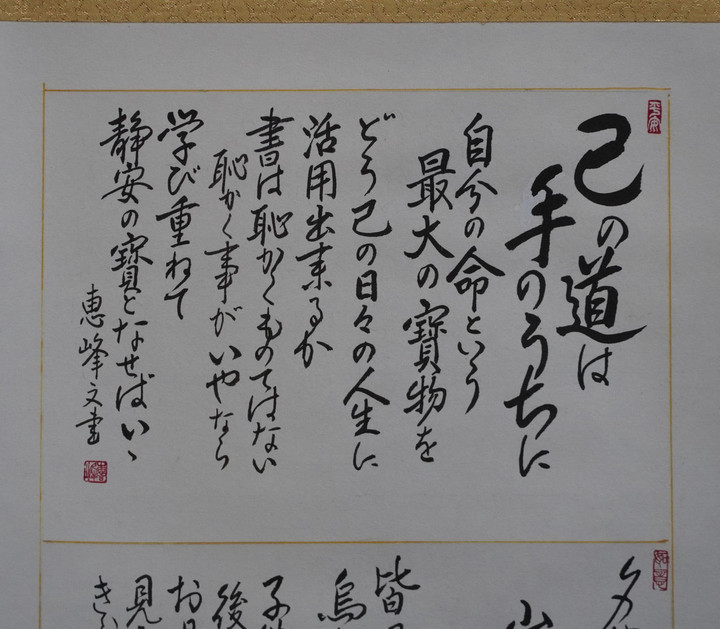 己の道は
手のうちに
自分の命という
最大の寶物を
どう己の日々の人生に
活用出来るか
書は恥かくものではない
恥かく事がいやなら
学び重ねて
静安の寶となせばいゝ
惠峰文書
夕
皆
烏
子
後
お
見
き